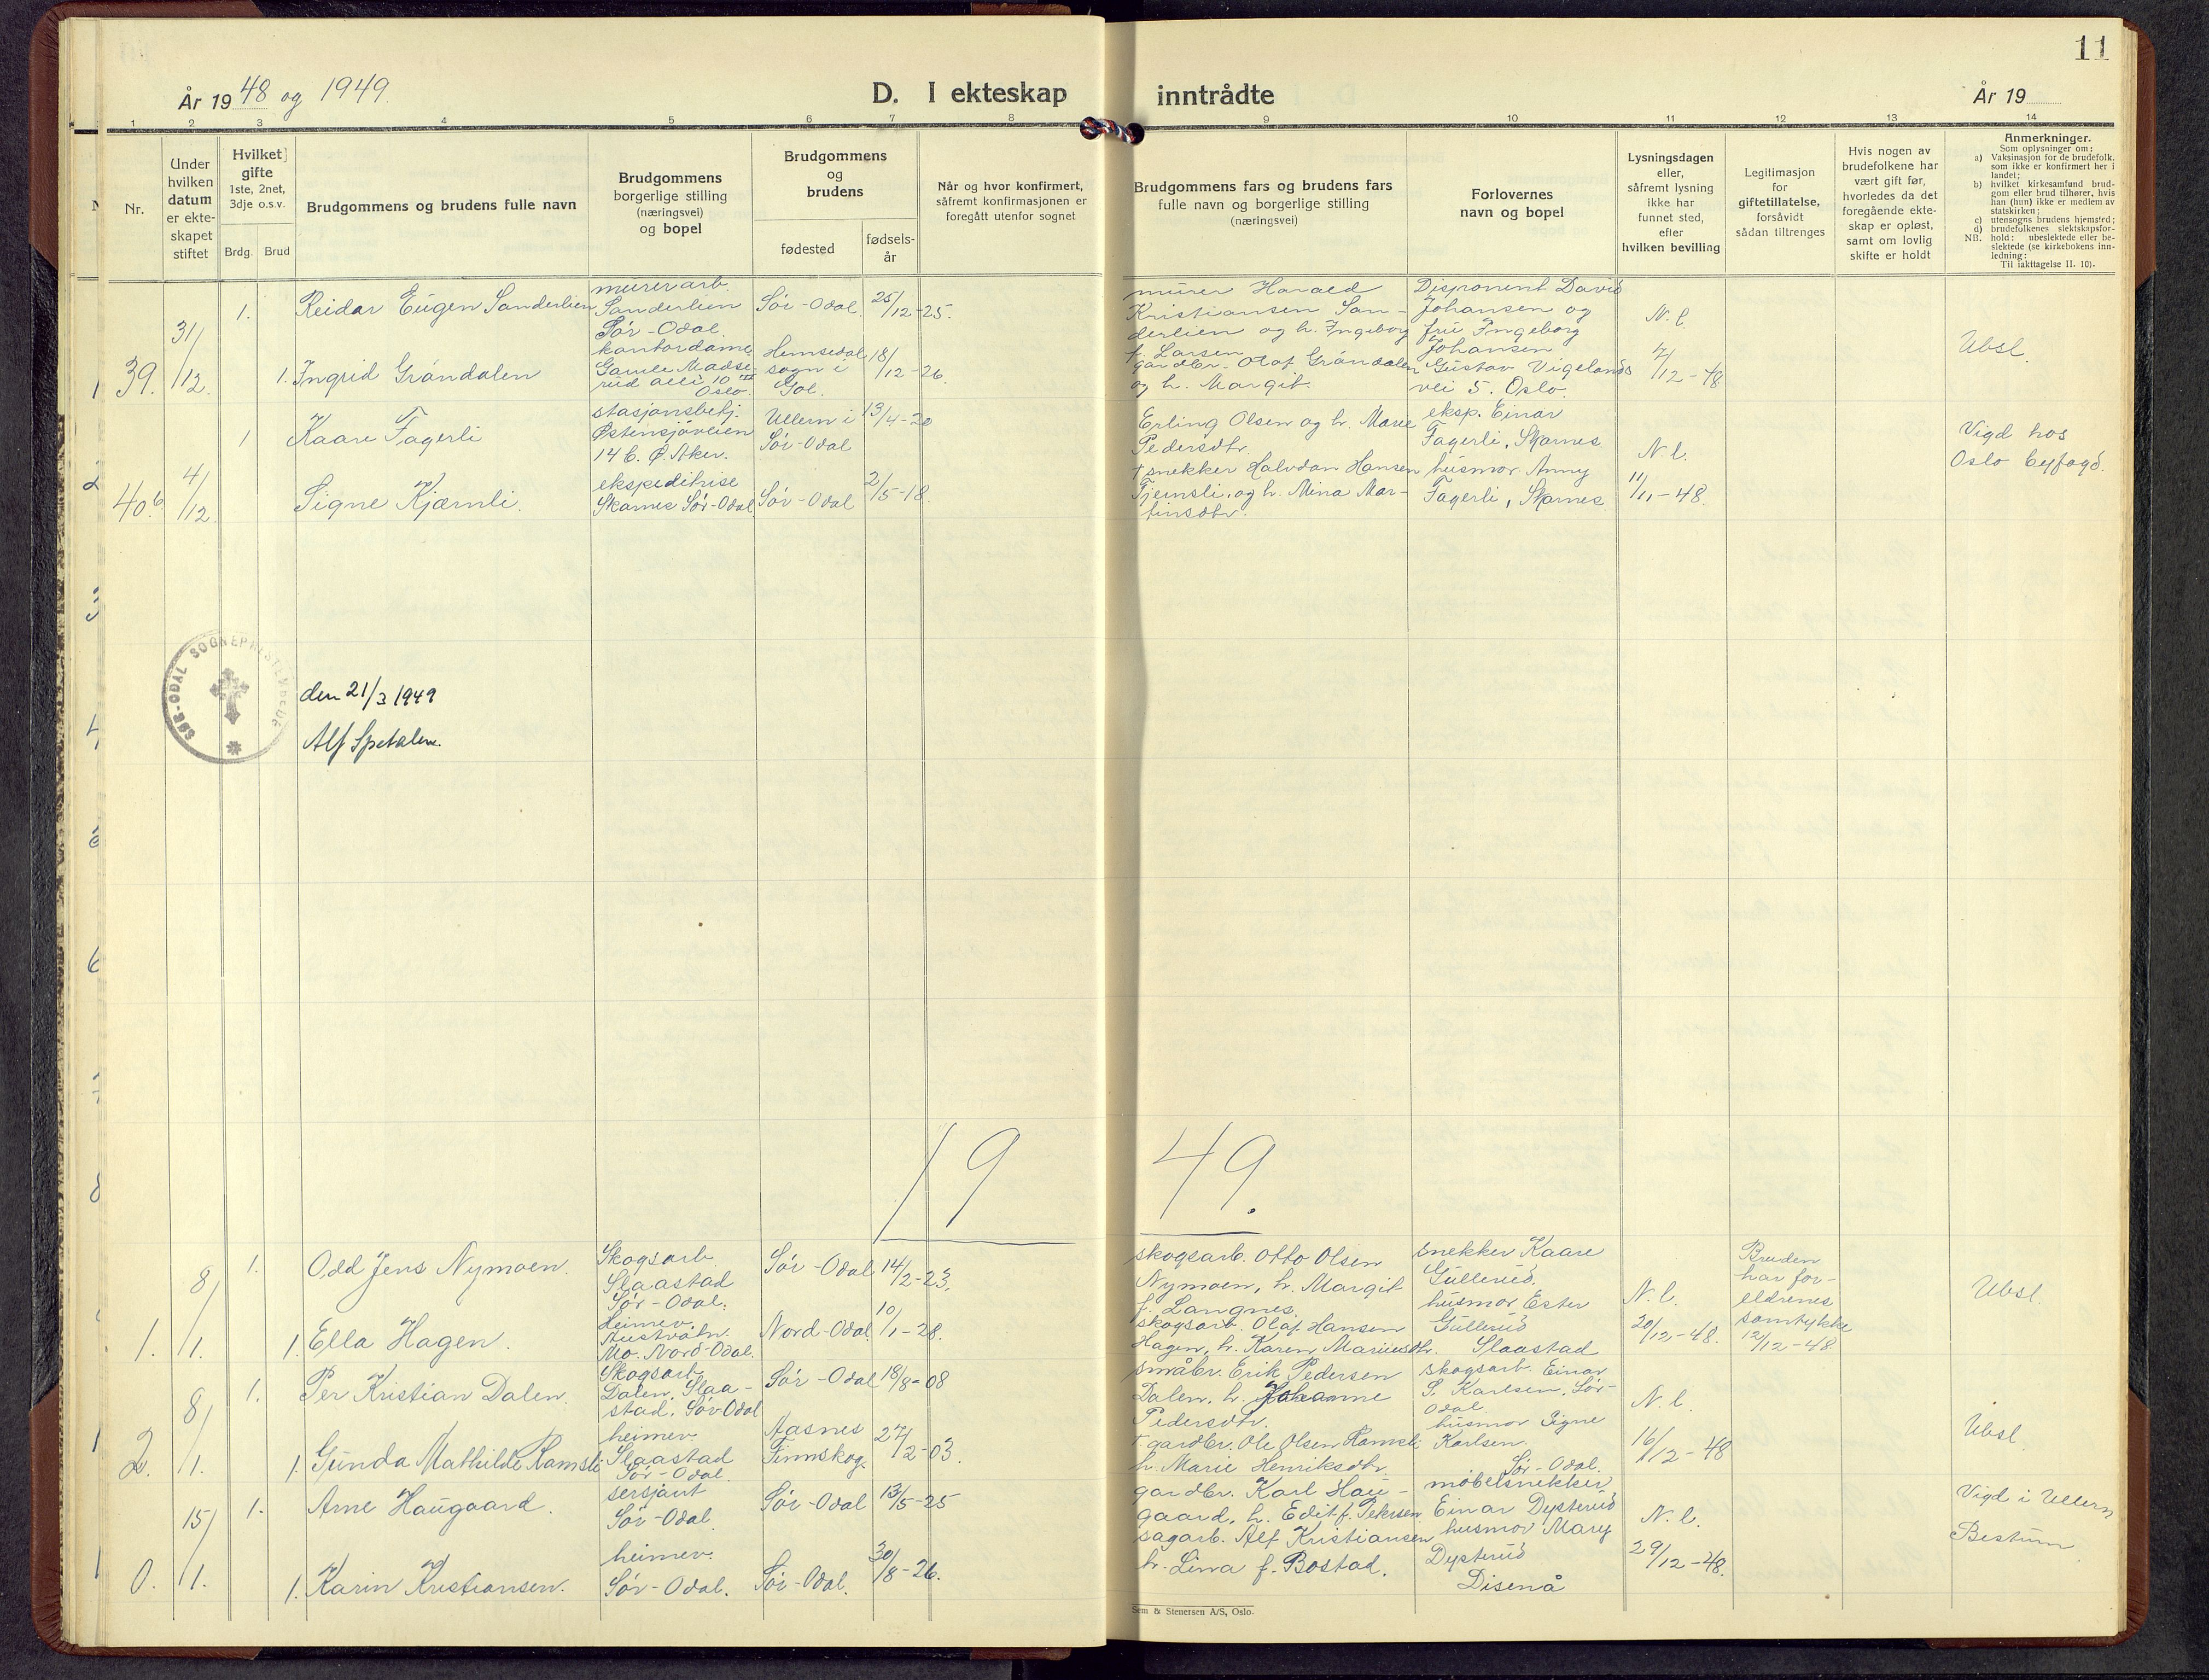 11
År 1948 og 1949.
D. I ekteskap inntrådte
År 19
1 2 3 4 5 6 7 8 9 10 11 12 13 14
Nr.
Under
hvilken
datum
er ekte-
skapet
stiftet
Hvilket
gifte
1ste, 2net,
3dje o.s.v.
Brdg. Brud
Brudgommens og brudens fulle navn
Brudgommens
borgerlige stilling
(næringsvei)
og bopel
Brudgommens
og
brudens
fødested
fødsels-
år
Når og hvor konfirmert,
såfremt konfirmasjonen er
foregått utenfor sognet
Brudgommens fars og brudens fars
fulle navn og borgerlige stilling
(næringsvei)
Forlovernes
navn og bopel
Lysningsdagen
eller,
såfremt lysning
ikke har
funnet sted,
efter
hvilken bevilling
Legitimasjon
for
giftetillatelse,
forsåvidt
sådan tiltrenges
Hvis nogen av
brudefolkene har
vært gift før,
hvorledes da det
foregående ekte-
skap er opløst,
samt om lovlig
skifte er holdt
Anmerkninger.
Som oplysninger om:
a) Vaksinasjon for de brudefolk,
som ikke er konfirmert her i
landet;
b) hvilket kirkesamfund brud-
gom eller brud tilhører, hvis
han (hun) ikke er medlem av
statskirken;
c) utensogns brudens hjemsted;
d) brudefolkenes slektskapsfor-
hold: ubeslektede eller be-
slektede (se kirkebokens inn-
ledning:
NB. Til iakttagelse II. 10).
39.
31/12.
1.
Reidar Eugen Sanderlien
murerarb.
Sanderlien
Sør-Odal.
Sør-Odal.
25/12-25.
murer Harald
Kristiansen San-
derlien og h. Ingeborg
f. Larsen
Disponent David
Johansen og
fru Ingeborg
Johansen
Gustav Vigelands
vei 5. Oslo.
N.l.
7/12-48
Ubsl.
1. Ingrid Grøndalen
kontordame
Gamle Madse-
rud allé 10
Oslo.
Hemsedal
sogn i
Gol.
18/12-26.
gardbr. Olaf Grøndalen
og h. Margit.
40.
4/12
1
Kaare Fagerli
stasjonsbetj.
Østensjøveien
14 b. Ø. Aker.
Ullern i
Sør-Odal
13/4-20
Erling Olsen og h. Marie
Pedersdtr.
eksp. Einar
Fagerli, Skarnes
husmor Anny
Fagerli, Skarnes
N.l.
11/11-48.
Vigd hos
Oslo byfogd.
Signe Kjærnli.
ekspeditrise
Skarnes Sør-Odal
Sør-Odal
2/5-18.
† snekker Halvdan Hansen
Tjernsli, og h. Mina Mar-
tinsdtr.
SØR-ODAL SOGNEPRESTEMBEDE
den 21/3 1949
Alf Spetalen.
1949.
1.
8/1.
1.
Odd Jens Nymoen.
Skogsarb.
Slaastad
Sør-Odal.
Sør-Odal
14/2-23.
skogsarb. Otto Olsen
Nymoen, h. Margit
f. Langnes.
snekker Kaare
Gullerud.
husmor Ester
Gullerud
Slaastad
N.l.
20/12-48.
Bruden
har for-
eldrenes
samtykke
12/12-48
Ubsl.
1. Ella Hagen.
Heimev.
Austvatn.
Mo. Nord-Odal.
Nord-Odal
10/1-28.
skogsarb. Olaf Hansen
Hagen, h. Karen Mariusdtr.
2.
8/1.
1.
Per Kristian Dalen.
Skogsarb.
Dalen, Slaa-
stad. Sør-Odal
Sør-Odal
18/8-08
småbr. Erik Pedersen
Dalen. h. Johanne
Pedersdtr.
skogsarb. Einar
S. Karlsen. Sør-
Odal.
husmor Signe
Karlsen.
Sør-Odal.
N.l.
16/12-48
Ubsl.
1. Gunda Mathilde Ramsli
heimev.
Slaastad
Sør-Odal.
Aasnes
Finnskog.
27/2-03.
† gardbr. Ole Olsen Ramsli
h. Marie Henriksdtr.
0.
15/1.
1.
Arne Haugaard.
sersjant
Sør-Odal.
Sør-Odal
13/5-25
gardbr. Karl Hau-
gaard, h. Edit f. Petersen
møbelsnekker
Einar Dysterud
husmor Mary
Dysterud
Disenå
N.l.
29/12-48.
Vigd i Ullern
Bestum.
1. Karin Kristiansen.
heimev.
Sør-Odal.
Sør-Odal.
30/8-26.
sagarb. Alf Kristiansen
h. Lina f. Bostad.
Sem & Stenersen A/S, Oslo.